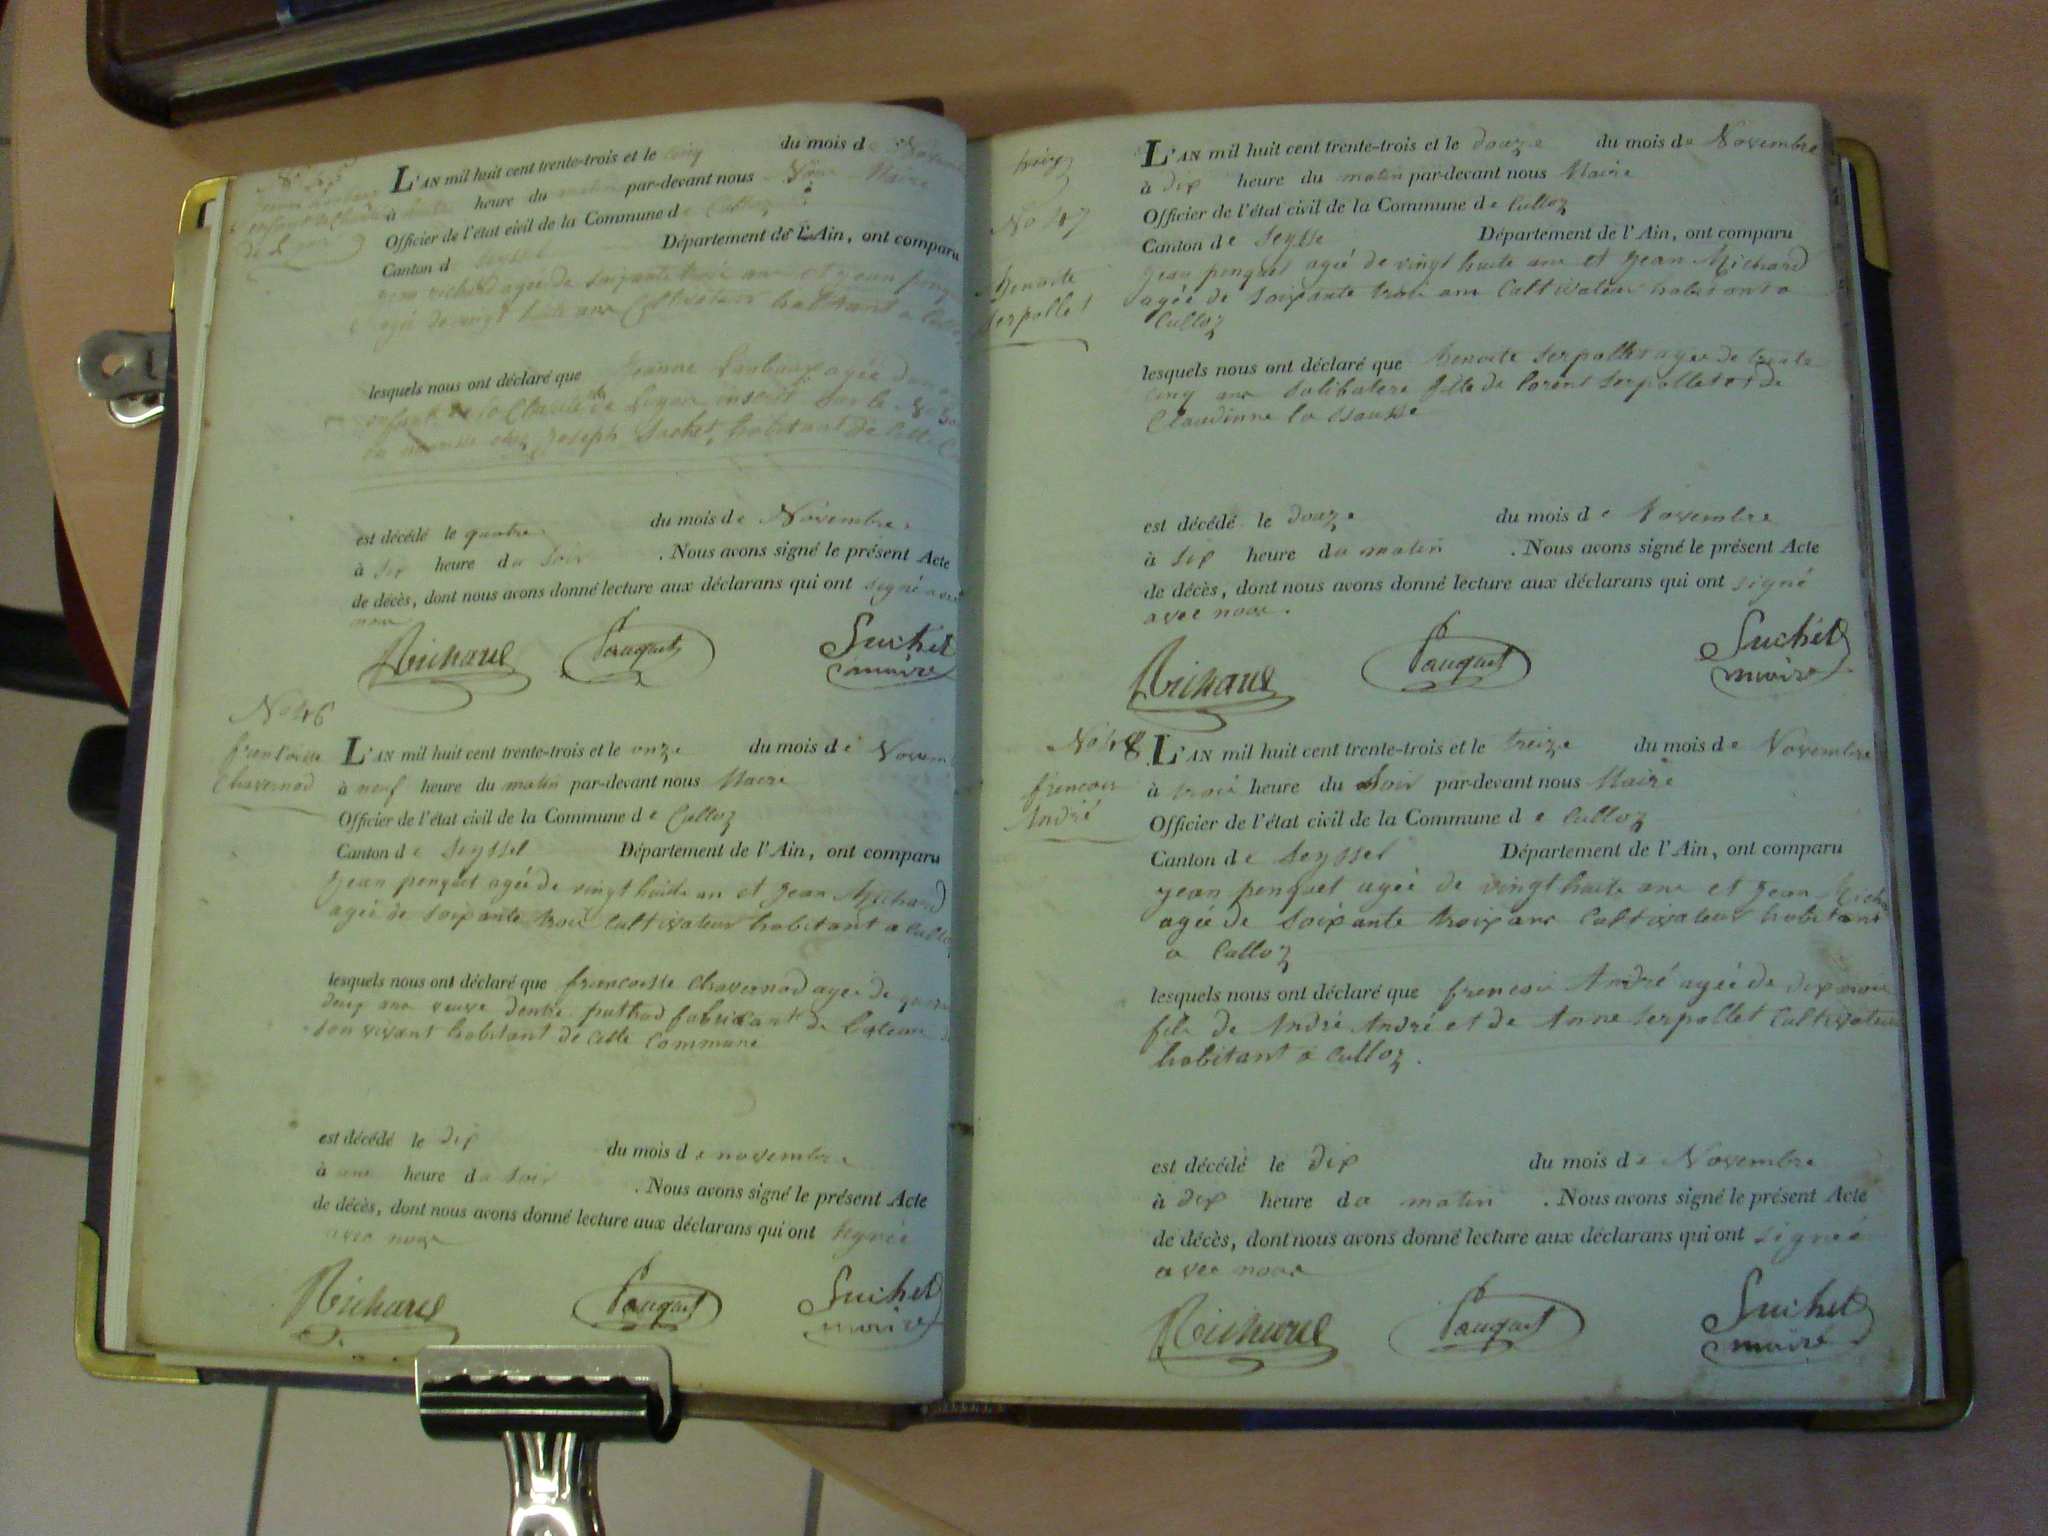 L'AN mil huit cent trente-trois et le cinq du mois de
heure du matin par-devant nous Maire
Officier de l'état civil de la Commune de Culloz
Canton d Département de l'Ain, ont comparu
agée de soixante trois ans et jean
agée de vingt huite ans Cultivateur habitant a
lesquels nous ont déclaré que Jeanne agée
de Lyon inscrit sur le
en nourisse chez Joseph Suchet, habitant de Cette
est décédé le quatre du mois de Novembre
à dix heure du soir . Nous avons signé le présent Acte
de décès, dont nous avons donné lecture aux déclarans qui ont signé avec
nous
Richard Pauquet Suchet
maire
No 46
francoisse
Chavernod
L'AN mil huit cent trente-trois et le onze du mois de Novem
à neuf heure du matin par-devant nous Maire
Officier de l'état civil de la Commune de Culloz
Canton de Seyssel Département de l'Ain, ont comparu
jean penquet agée de vingt huite an et jean Richard
agée de soixante trois Cultivateur habitant a Culloz
lesquels nous ont déclaré que francoisse Chavernod agée de
deux ans veuve puthod fabricant de
son vivant habitant de Cette Commune
est décédé le dix du mois de novembre
à une heure du soir . Nous avons signé le présent Acte
de décès, dont nous avons donné lecture aux déclarans qui ont signée
avec nous
Richard Pauquet Suchet
maire
No 47
Benoite
Serpollet
L'AN mil huit cent trente-trois et le douze du mois de Novembre
à dix heure du matin par-devant nous Maire
Officier de l'état civil de la Commune de Culloz
Canton de Seysse Département de l'Ain, ont comparu
jean penquet agée de vingt huite ans et jean Richard
agée de soixante trois ans Cultivateur habitant a
Culloz
lesquels nous ont déclaré que Benoite Serpollet agée de trente
cinq ans Selibatere fille de lorent Serpollet et de
Claudinne la
est décédé le douze du mois de Novembre
à six heure du matin . Nous avons signé le présent Acte
de décès, dont nous avons donné lecture aux déclarans qui ont signé
avec nous.
Richard Pauquet Suchet
maire
No 48
francois
André
L'AN mil huit cent trente-trois et le treize du mois de Novembre
à trois heure du Soir par-devant nous Maire
Officier de l'état civil de la Commune de Culloz
Canton de Seyssel Département de l'Ain, ont comparu
jean penquet agée de vingt huite ans et jean Richa
agée de Soixante troix ans Cultivateur habitant
a Culloz
lesquels nous ont déclaré que francois André agée de dix mois
fils de André André et de Anne Serpollet Cultivateur
habitant a Culloz.
est décédé le dix du mois de Novembre
à dix heure du matin . Nous avons signé le présent Acte
de décès, dont nous avons donné lecture aux déclarans qui ont signée
avec nous
Richard Pauquet Suchet
maire